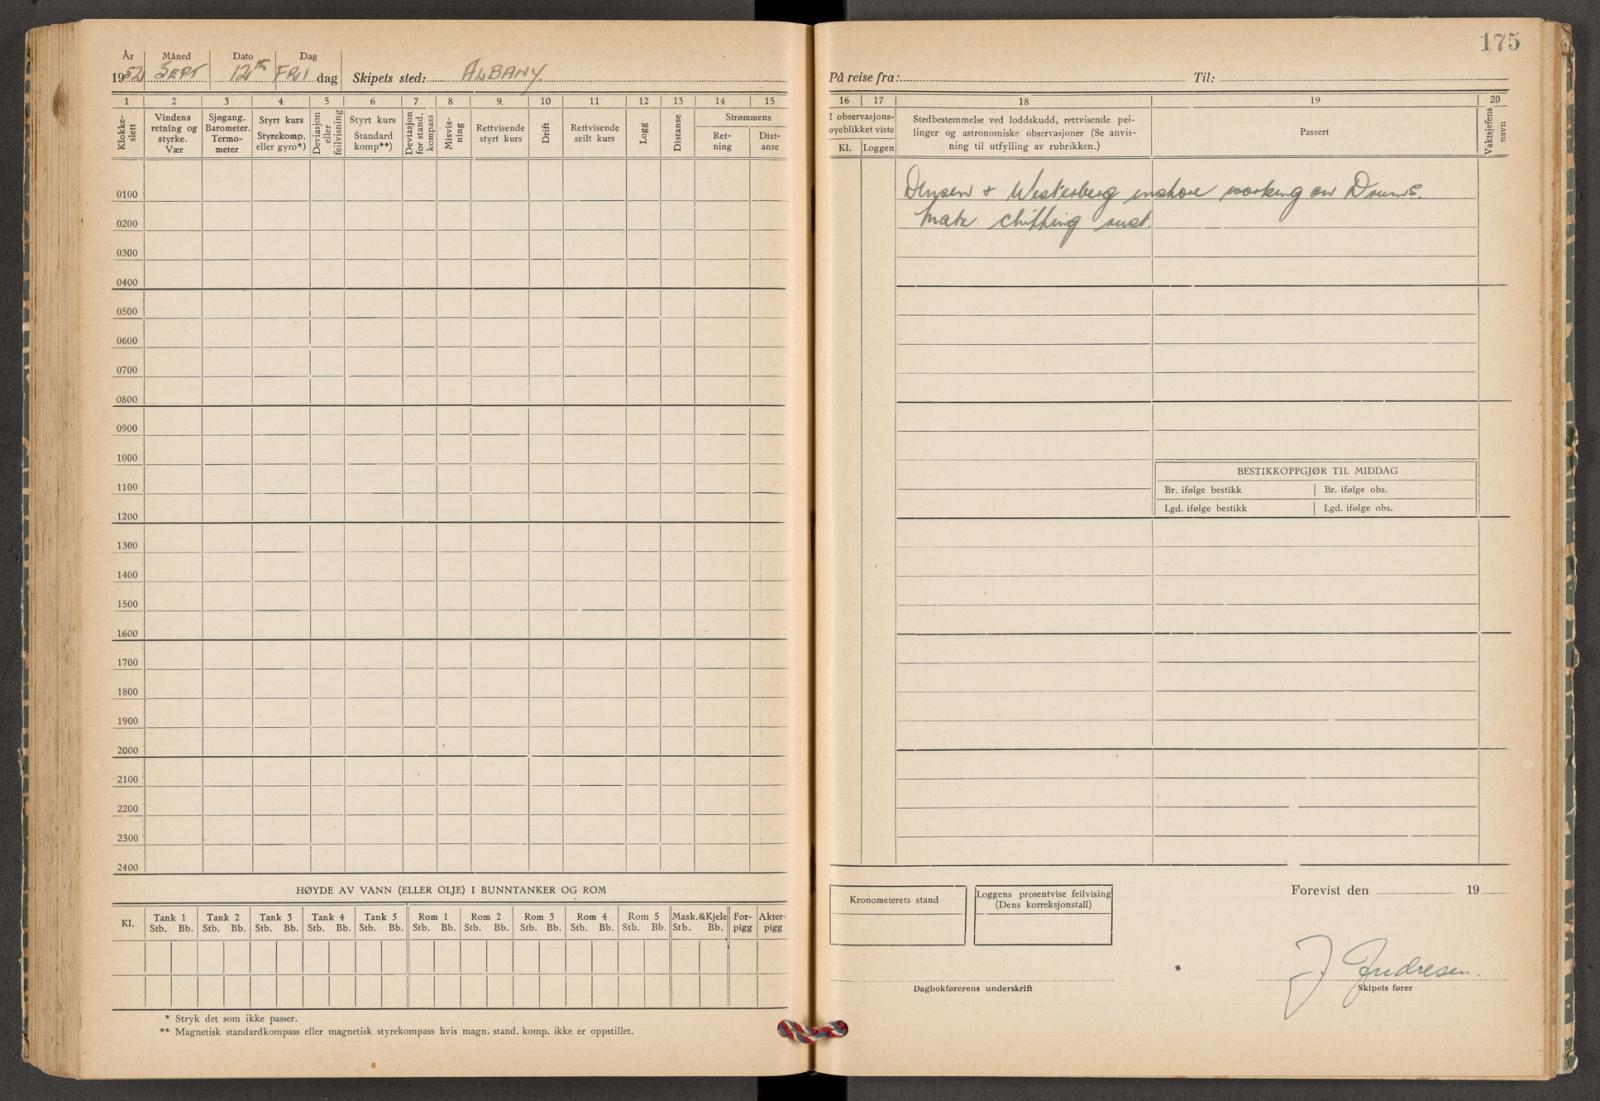 175
År Måned Dato Dag
1952 SEPT 12th FRI dag Skipets sted: ALBANY.
1 2 3 4 5 6 7 8 9 10 11 12 13 14 15
Klokkeslett
Vindens retning og styrke. Vær
Sjøgang. Barometer. Termometer
Styrt kurs Styrekomp. eller gyro*)
Deviasjon eller feilvisning
Styrt kurs Standard komp**)
Deviasjon for stand. kompass
Misvisning
Rettvisende styrt kurs
Drift
Rettvisende seilt kurs
Logg
Distanse
Strømmens
Retning Distanse
0100
0200
0300
0400
0500
0600
0700
0800
0900
1000
1100
1200
1300
1400
1500
1600
1700
1800
1900
2000
2100
2200
2300
2400
HØYDE AV VANN (ELLER OLJE) I BUNNTANKER OG ROM
Kl. Tank 1 Tank 2 Tank 3 Tank 4 Tank 5 Rom 1 Rom 2 Rom 3 Rom 4 Rom 5 Mask.&Kjele Forpigg Akterpigg
Stb. Bb. Stb. Bb. Stb. Bb. Stb. Bb. Stb. Bb. Stb. Bb. Stb. Bb. Stb. Bb. Stb. Bb. Stb. Bb. Stb. Bb.
* Stryk det som ikke passer.
** Magnetisk standardkompass eller magnetisk styrekompass hvis magn. stand. komp. ikke er oppstillet.
På reise fra: Til:
16 17 18 19 20
I observasjons-
øyeblikket viste
Kl. Loggen
Stedbestemmelse ved loddskudd, rettvisende pei-
linger og astronomiske observasjoner (Se anvis-
ning til utfylling av rubrikken.)
Passert
Vaktsjefens navn
& Westerberg working on Drums.
Mate chipping rust.
BESTIKKOPPGJØR TIL MIDDAG
Br. ifølge bestikk Br. ifølge obs.
Lgd. ifølge bestikk Lgd. ifølge obs.
Kronometerets stand
Loggens prosentvise feilvising
(Dens korreksjonstall)
Forevist den 19
J. Andresen.
Dagbokførerens underskrift
Skipets fører